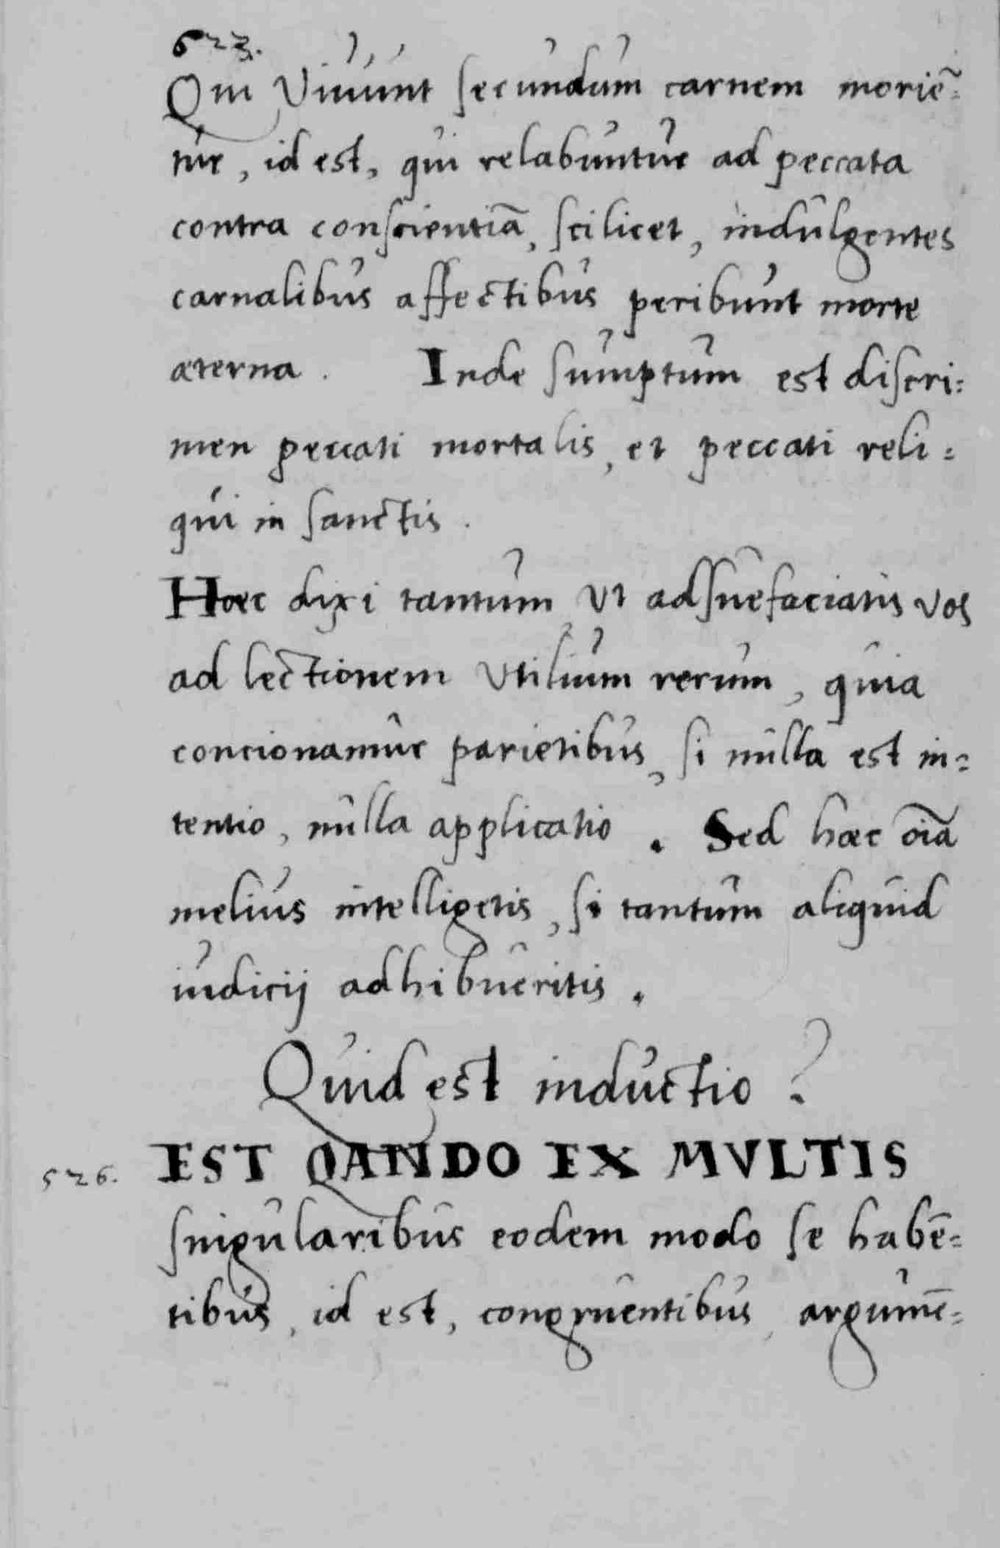 623.
Qui Viuunt secundum carnem moriē=
tur, id est, qui relabuntur ad peccata
contra conscientiā, scilicet, indulgentes
carnalibus affectibus peribunt morte
æterna. Inde sumptum est discri=
men peccati mortalis, et peccati reli=
qui in sanctis.
Hæc dixi tantum Vt adsuefaciatis vos
ad lectionem Vtilium rerum, quia
concionamur parietibus, si nulla est in=
tentio, nulla applicatio. Sed hæc oīa
melius intelligetis, si tantum aliquid
iudicij adhibueritis.
Quid est inductio?
526. EST QANDO EX MVLTIS
singularibus eodem modo se habē=
tibus, id est, congruentibus, argumē=